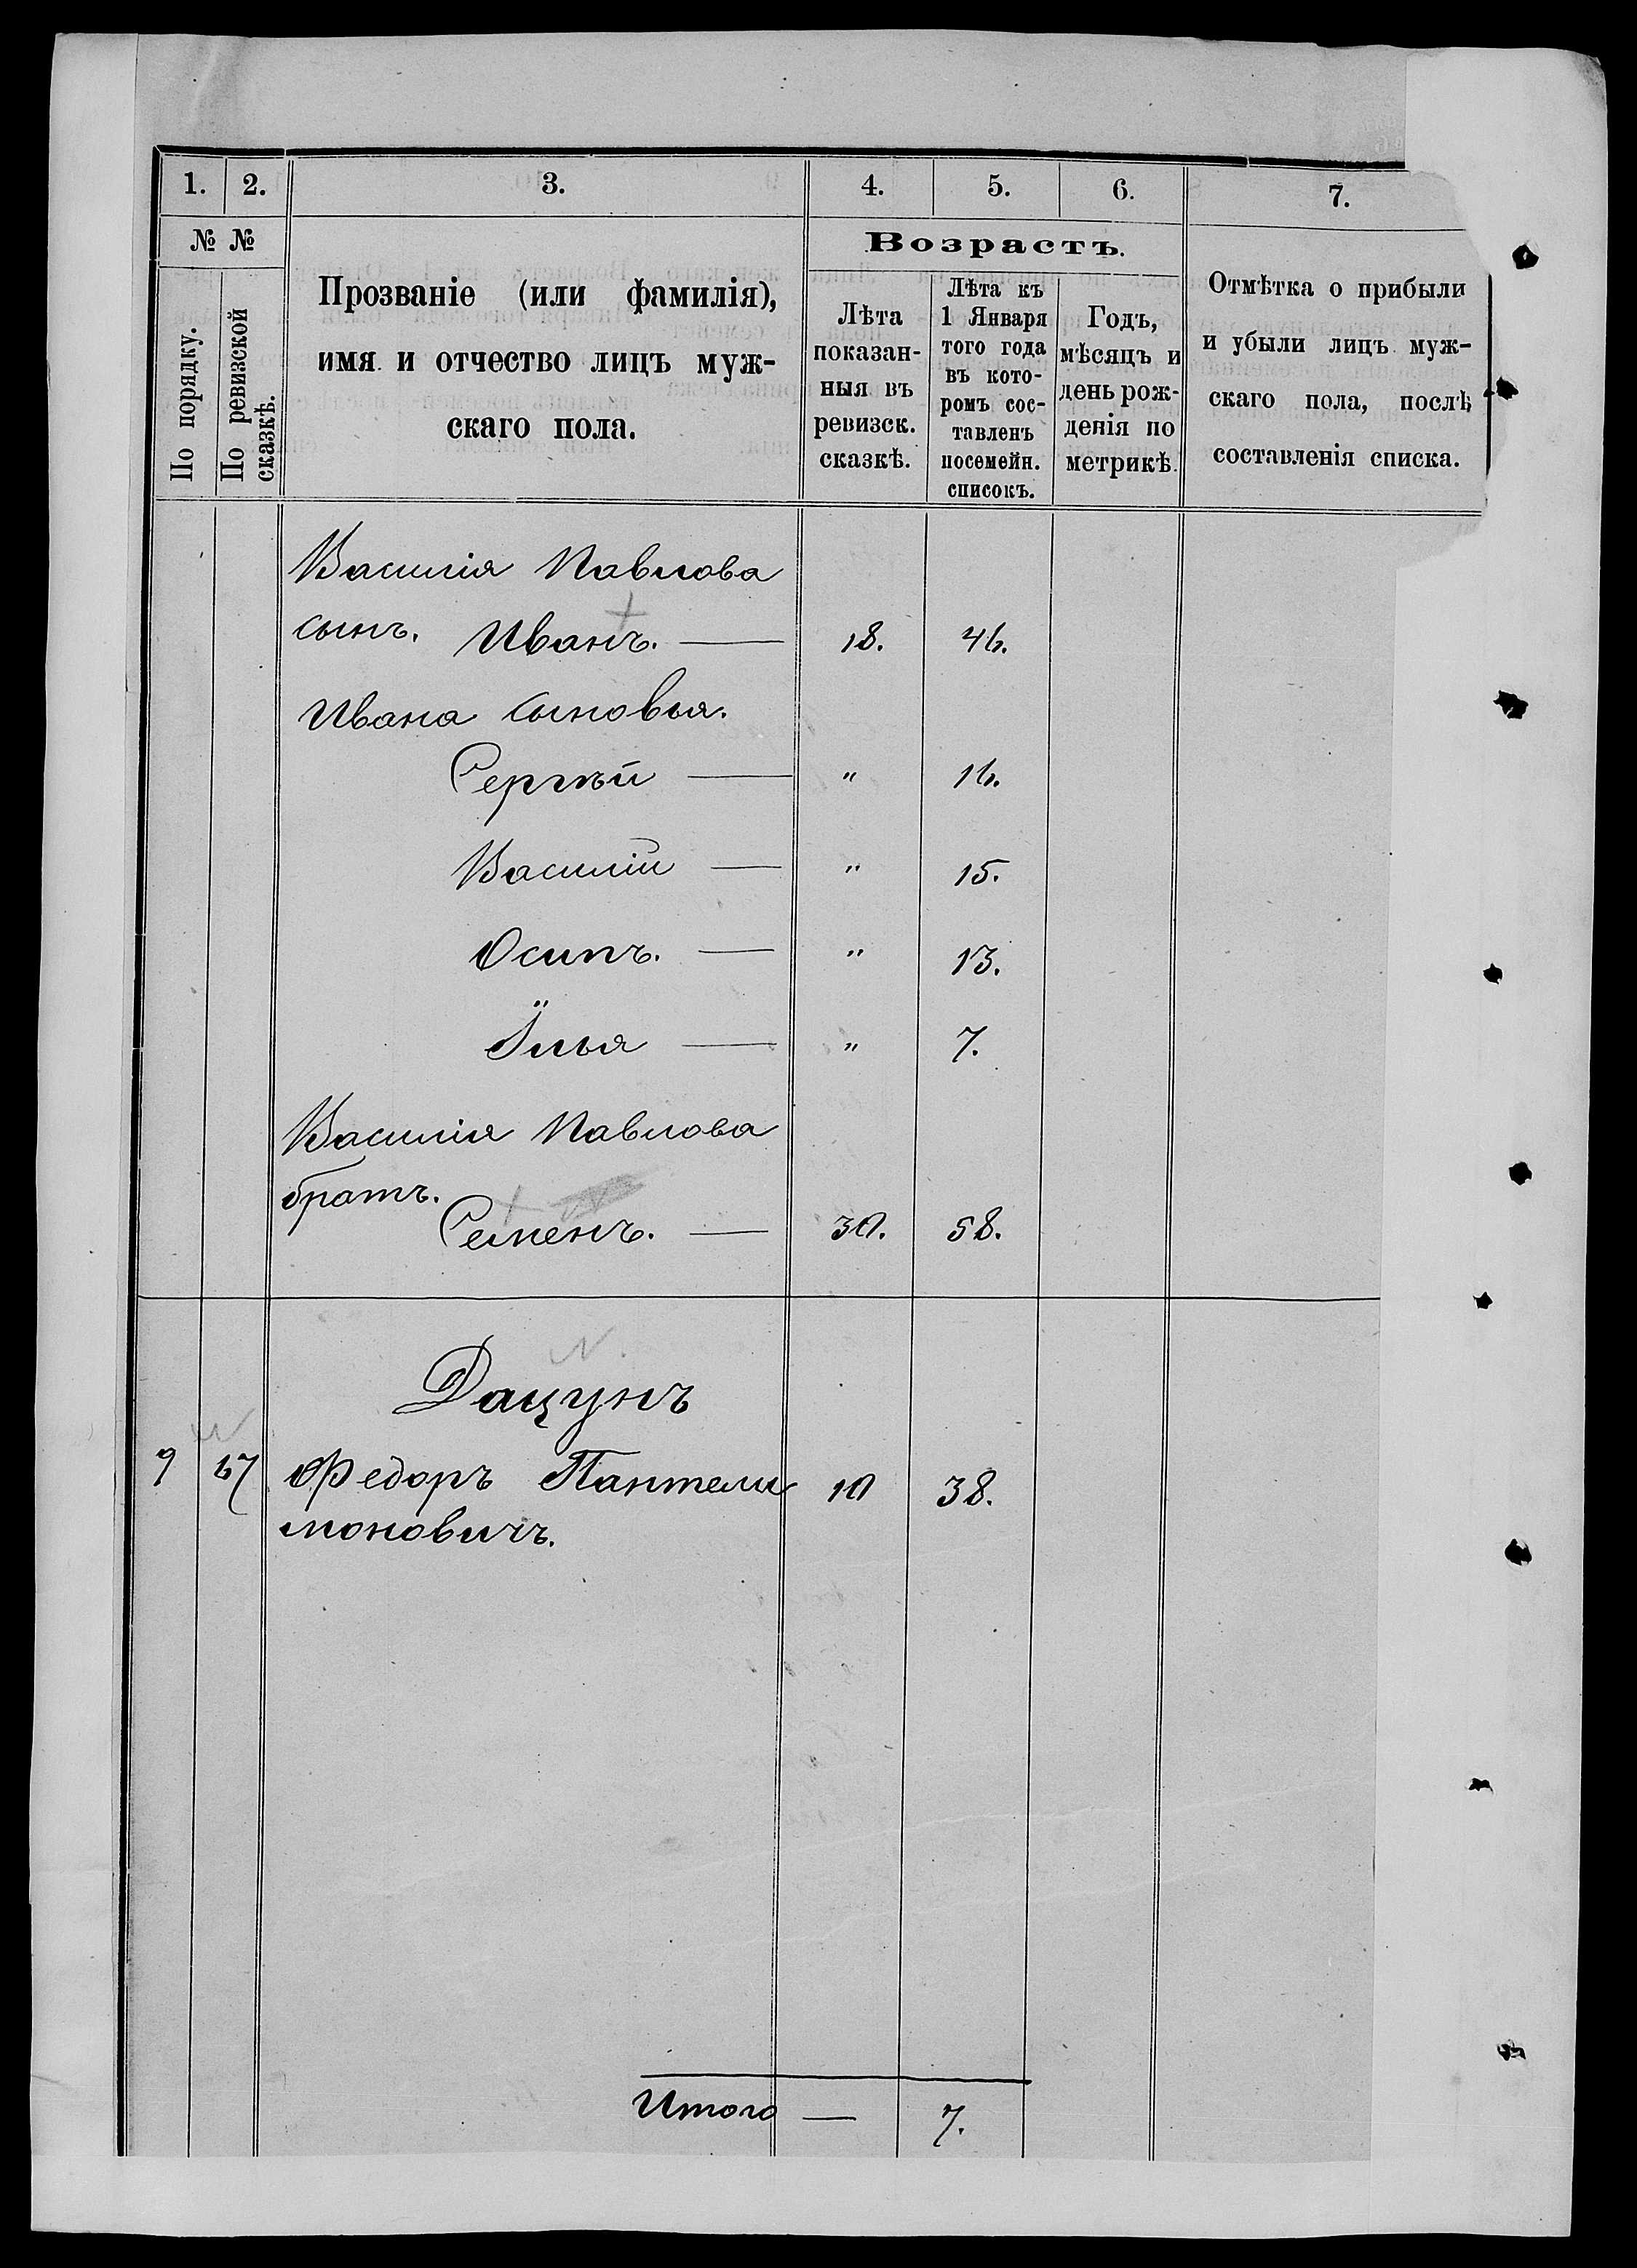 1. 2. 3. 4. 5. 6. 7.
№ №
По порядку.
По ревизской
сказкѣ.
Прозваніе (или фамилія),
имя и отчество лицъ муж-
скаго пола.
Возрастъ.
Лѣта
показан-
ныя въ
ревизск.
сказкѣ.
Лѣта къ
1 Января
того года
въ кото-
ромъ сос-
тавленъ
посемейн.
списокъ.
Годъ,
мѣсяцъ и
день рож-
денія по
метрикѣ.
Отмѣтка о прибыли
и убыли лицъ муж-
скаго пола, послѣ
составленія списка.
Василія Павлова
сынъ. Иванъ. — 18. 46.
Ивана сыновья.
Сергѣй — " 16.
Василій — " 15.
Осипъ. — " 13.
Їлья — " 7.
Василія Павлова
братъ.
Семенъ. — 30. 58.
Дацунъ
9 67 Федоръ Пантели 10 38.
моновичъ.
Итого — 7.